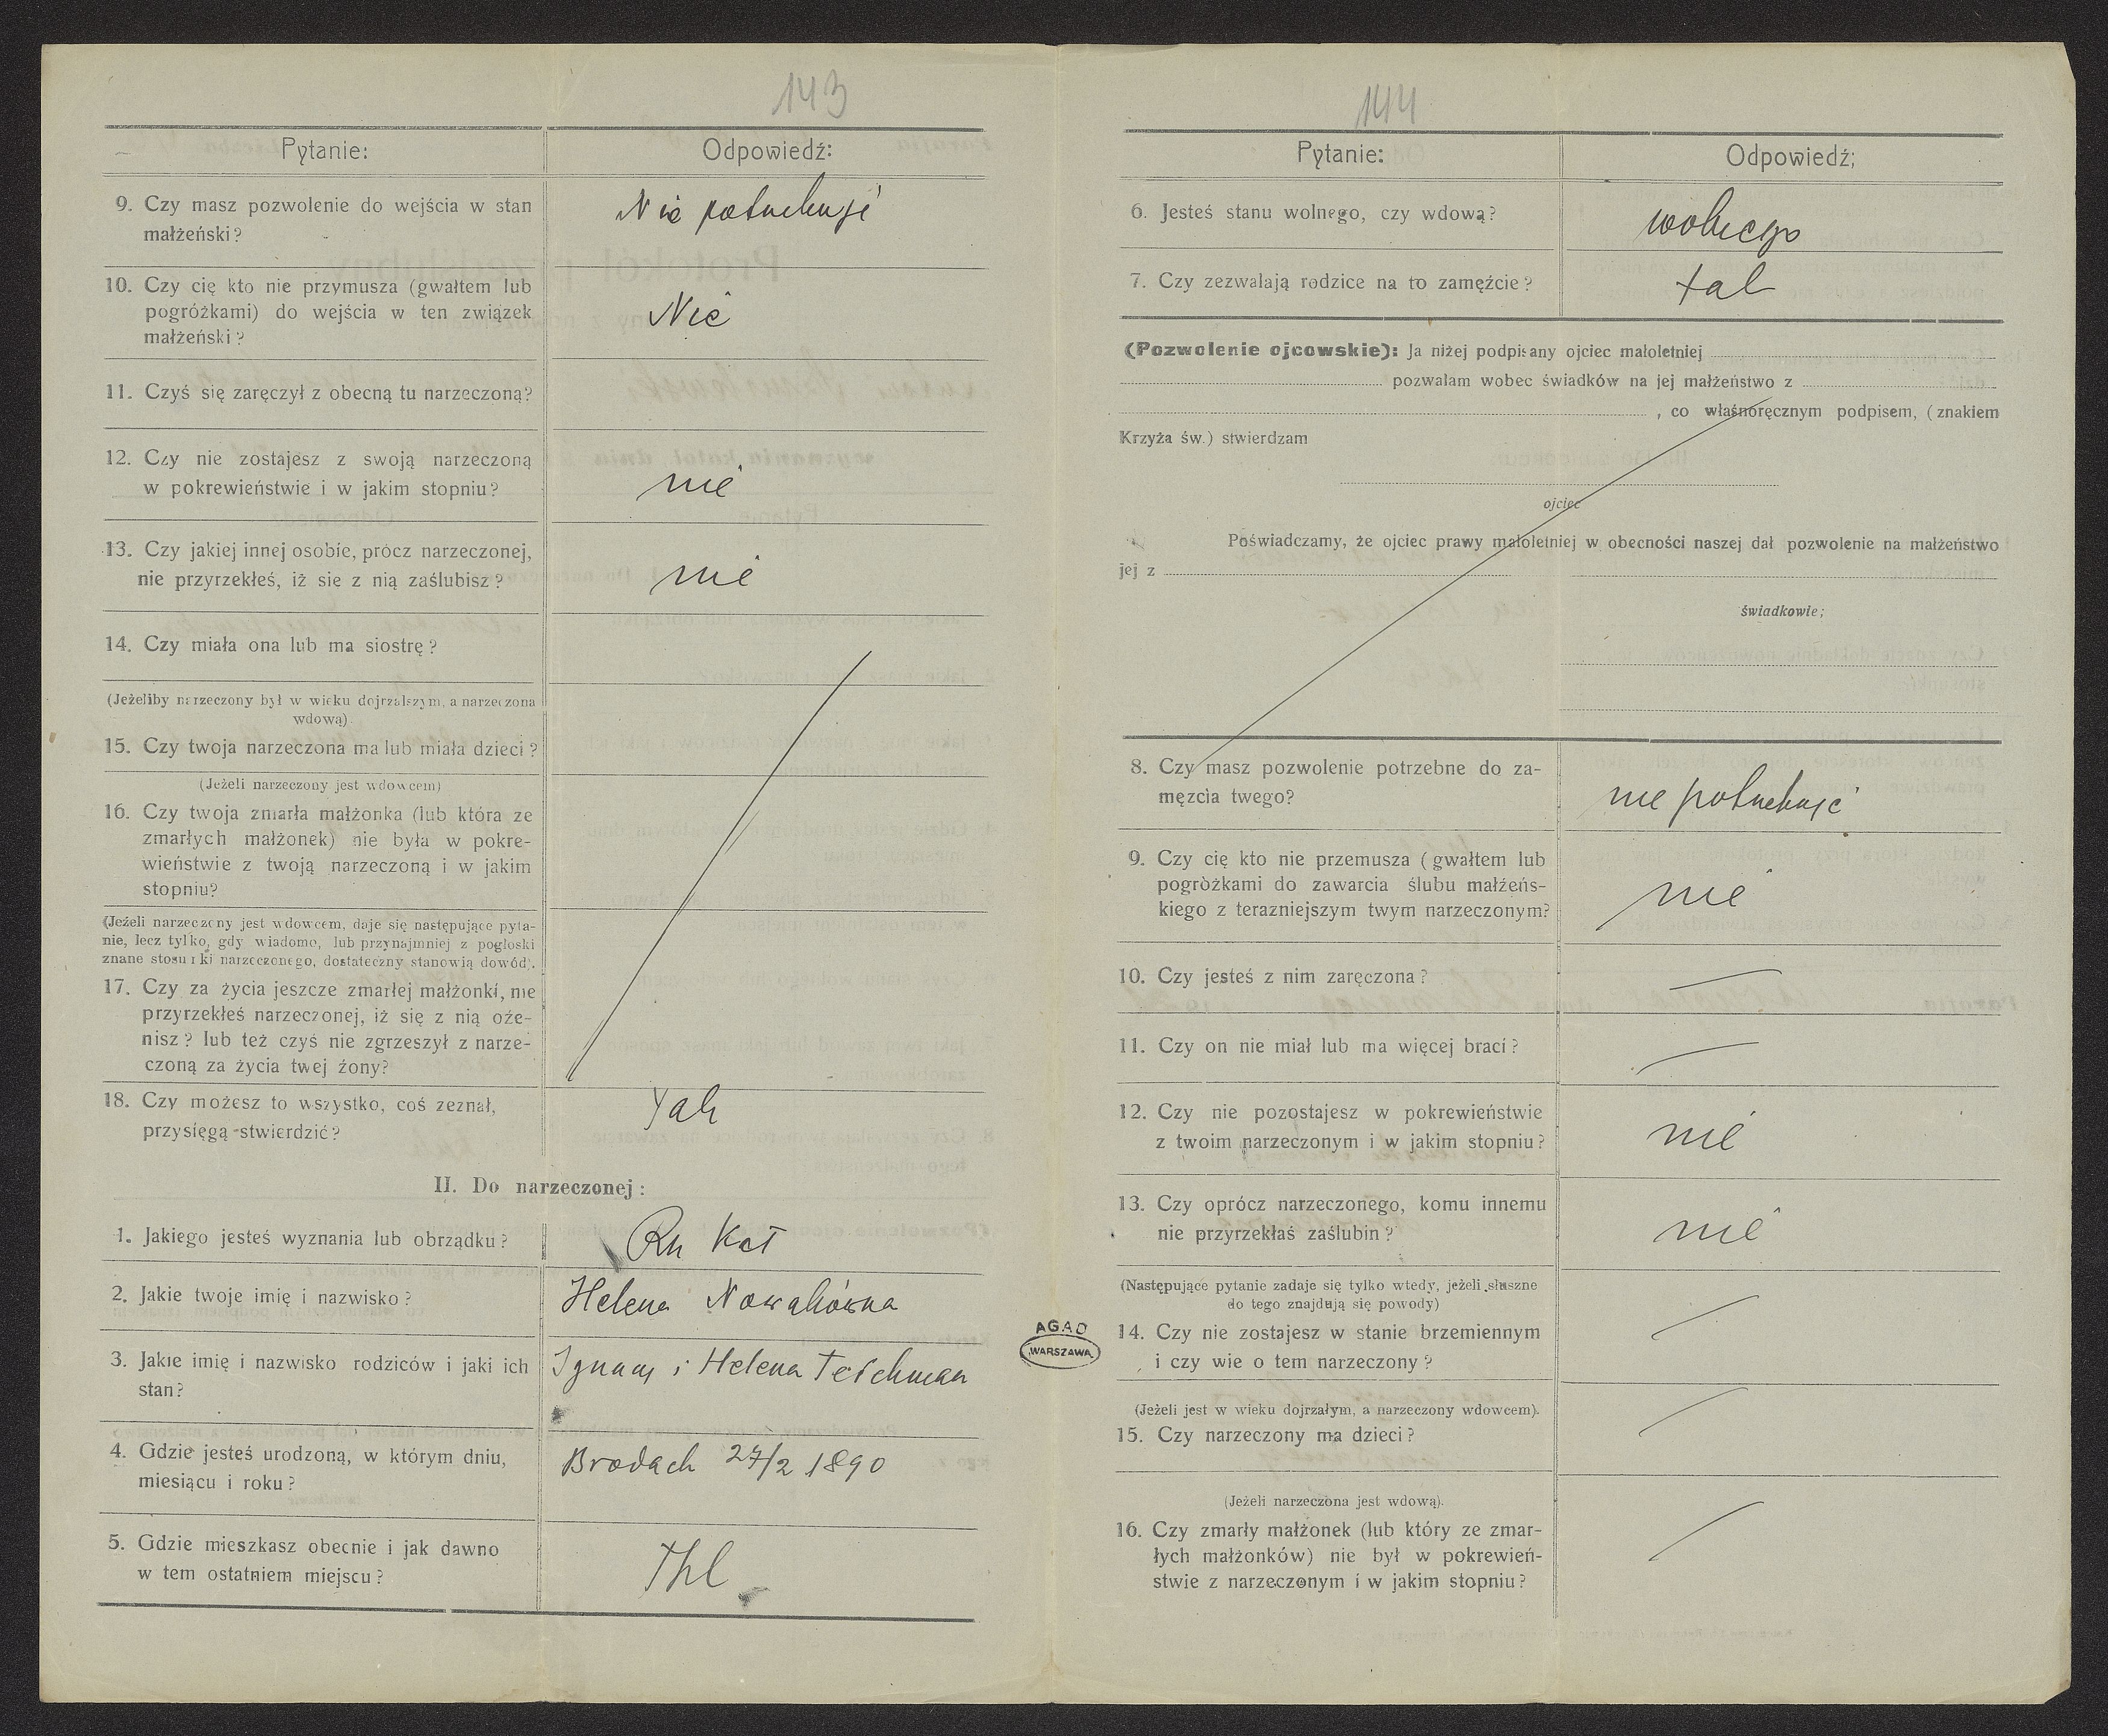 143
Pytanie:
Odpowiedź:
9. Czy masz pozwolenie do wejścia w stan
małżeński?
Nie potrzebuję
10. Czy cię kto nie przymusza (gwałtem lub
pogróżkami) do wejścia w ten związek
małżeński?
Nie
11. Czyś się zaręczył z obecną tu narzeczoną?
12. Czy nie zostajesz z swoją narzeczoną
w pokrewieństwie i w jakim stopniu?
nie
13. Czy jakiej innej osobie, prócz narzeczonej,
nie przyrzekłeś, iż sie z nią zaślubisz?
nie
14. Czy miała ona lub ma siostrę?
(Jeżeliby narzeczony był w wieku dojrzalszym, a narzeczona
wdową)
15. Czy twoja narzeczona ma lub miała dzieci?
(Jeżeli narzeczony jest wdowcem)
16. Czy twoja zmarła małżonka (lub która ze
zmarłych małżonek) nie była w pokre-
wieństwie z twoją narzeczoną i w jakim
stopniu?
(Jeżeli narzeczony jest wdowcem, daje się następujące pyta-
nie, lecz tylko, gdy wiadomo, lub przynajmniej z pogłoski
znane stosunki narzeczonego, dostateczny stanowią dowód).
17. Czy za życia jeszcze zmarłej małżonki, nie
przyrzekłeś narzeczonej, iż się z nią oże-
nisz? lub też czyś nie zgrzeszył z narze-
czoną za życia twej żony?
18. Czy możesz to wszystko, coś zeznał,
przysięgą stwierdzić?
Tak
II. Do narzeczonej:
1. Jakiego jesteś wyznania lub obrządku?
Rz Kat
2. Jakie twoje imię i nazwisko?
Helena Nowakówna
3. Jakie imię i nazwisko rodziców i jaki ich
stan?
Ignacy i Helena Teichman
4. Gdzie jesteś urodzoną, w którym dniu,
miesiącu i roku?
Brodach 27/2 1890
5. Gdzie mieszkasz obecnie i jak dawno
w tem ostatniem miejscu?
AGAD
WARSZAWA
144
Pytanie:
Odpowiedź;
6. Jesteś stanu wolnego, czy wdową?
wolnego
7. Czy zezwalają rodzice na to zamęźcie?
tak
(Pozwolenie ojcowskie): Ja niżej podpisany ojciec małoletniej
pozwalam wobec świadków na jej małżeństwo z
, co własnoręcznym podpisem, (znakiem
Krzyża św.) stwierdzam
ojciec
Poświadczamy, że ojciec prawy małoletniej w obecności naszej dał pozwolenie na małżeństwo
jej z
świadkowie;
8. Czy masz pozwolenie potrzebne do za-
męzcia twego?
nie potrzebuję
9. Czy cię kto nie przemusza (gwałtem lub
pogròżkami do zawarcia ślubu małżeńs-
kiego z terazniejszym twym narzeczonym?
nie
10. Czy jesteś z nim zaręczona?
11. Czy on nie miał lub ma więcej braci?
12. Czy nie pozostajesz w pokrewieństwie
z twoim narzeczonym i w jakim stopniu?
nie
13. Czy oprócz narzeczonego, komu innemu
nie przyrzekłaś zaślubin?
nie
(Następujące pytanie zadaje się tylko wtedy, jeżeli słuszne
do tego znajdują się powody)
14. Czy nie zostajesz w stanie brzemiennym
i czy wie o tem narzeczony?
(Jeżeli jest w wieku dojrzałym, a narzeczony wdowcem).
15. Czy narzeczony ma dzieci?
(Jeżeli narzeczona jest wdową).
16. Czy zmarły małżonek (lub który ze zmar-
łych małżonków) nie był w pokrewień-
stwie z narzeczonym i w jakim stopniu?